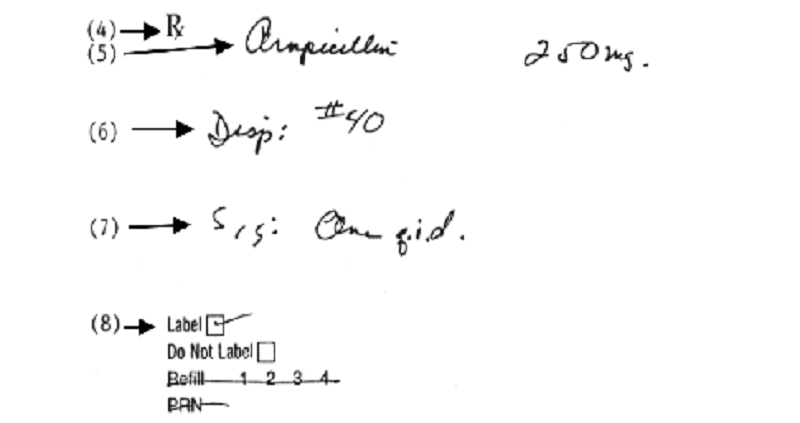 (4) ℞
(5) Ampicillin 250 mg.
(6) Disp: #40
(7) Sig: One q.i.d.
(8) Label
Do Not Label
Refill 1 2 3 4
PRN